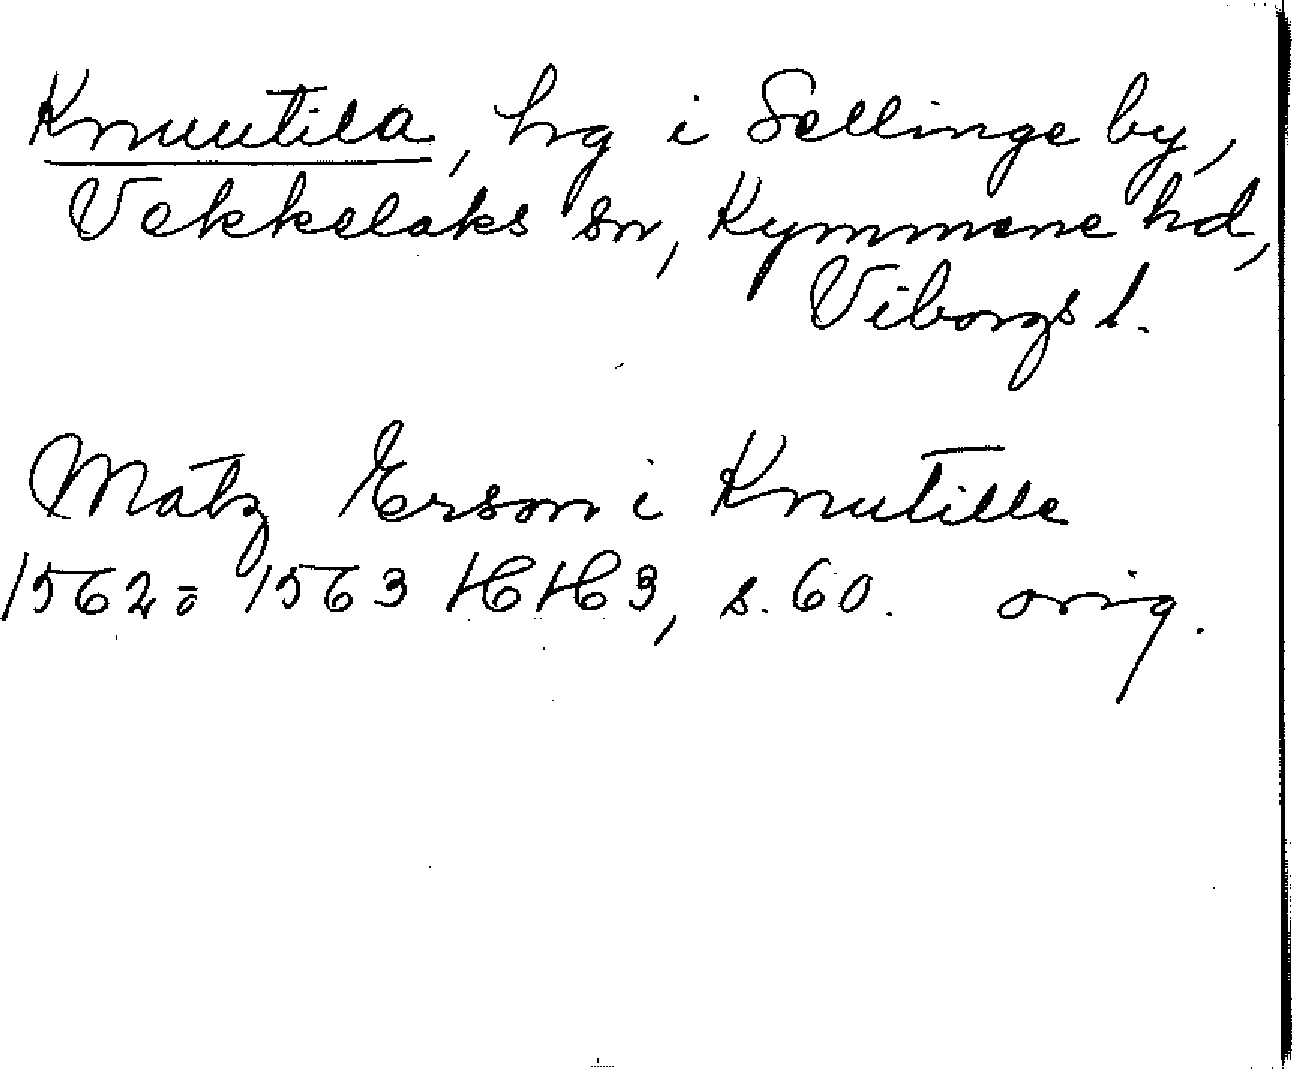 Knuutila, hg i Sellinge by,
Vekkelaks sn, Kymmene hd,
Viborgs l.
Matz Erson i Knutille
1562 = 1563 HH 3, s. 60. orig.